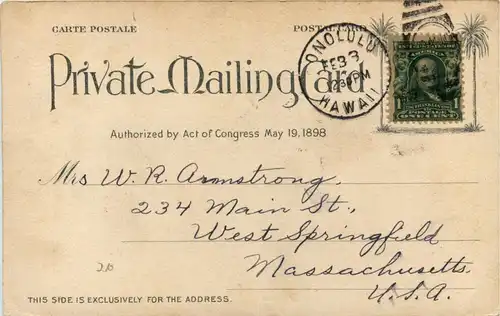 CARTE POSTALE POSTAL CARD
Private Mailing Card
HONOLULU
FEB 3
1230PM
HAWAII
1 1
ONE CENT
Authorized by Act of Congress May 19, 1898
Mrs W. R. Armstrong.
234 Main St.,
West Springfield
Massachusetts.
U.S.A.
THIS SIDE IS EXCLUSIVELY FOR THE ADDRESS.